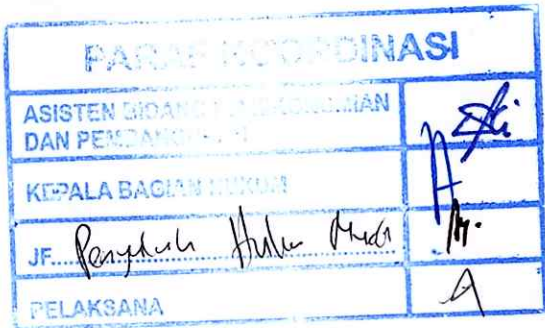 PARAF KOORDINASI
ASISTEN BIDANG PEREKONOMIAN
DAN PEMBANGUNAN
KEPALA BAGIAN HUKUM
JF. Penyuluh Hukum Muda
PELAKSANA